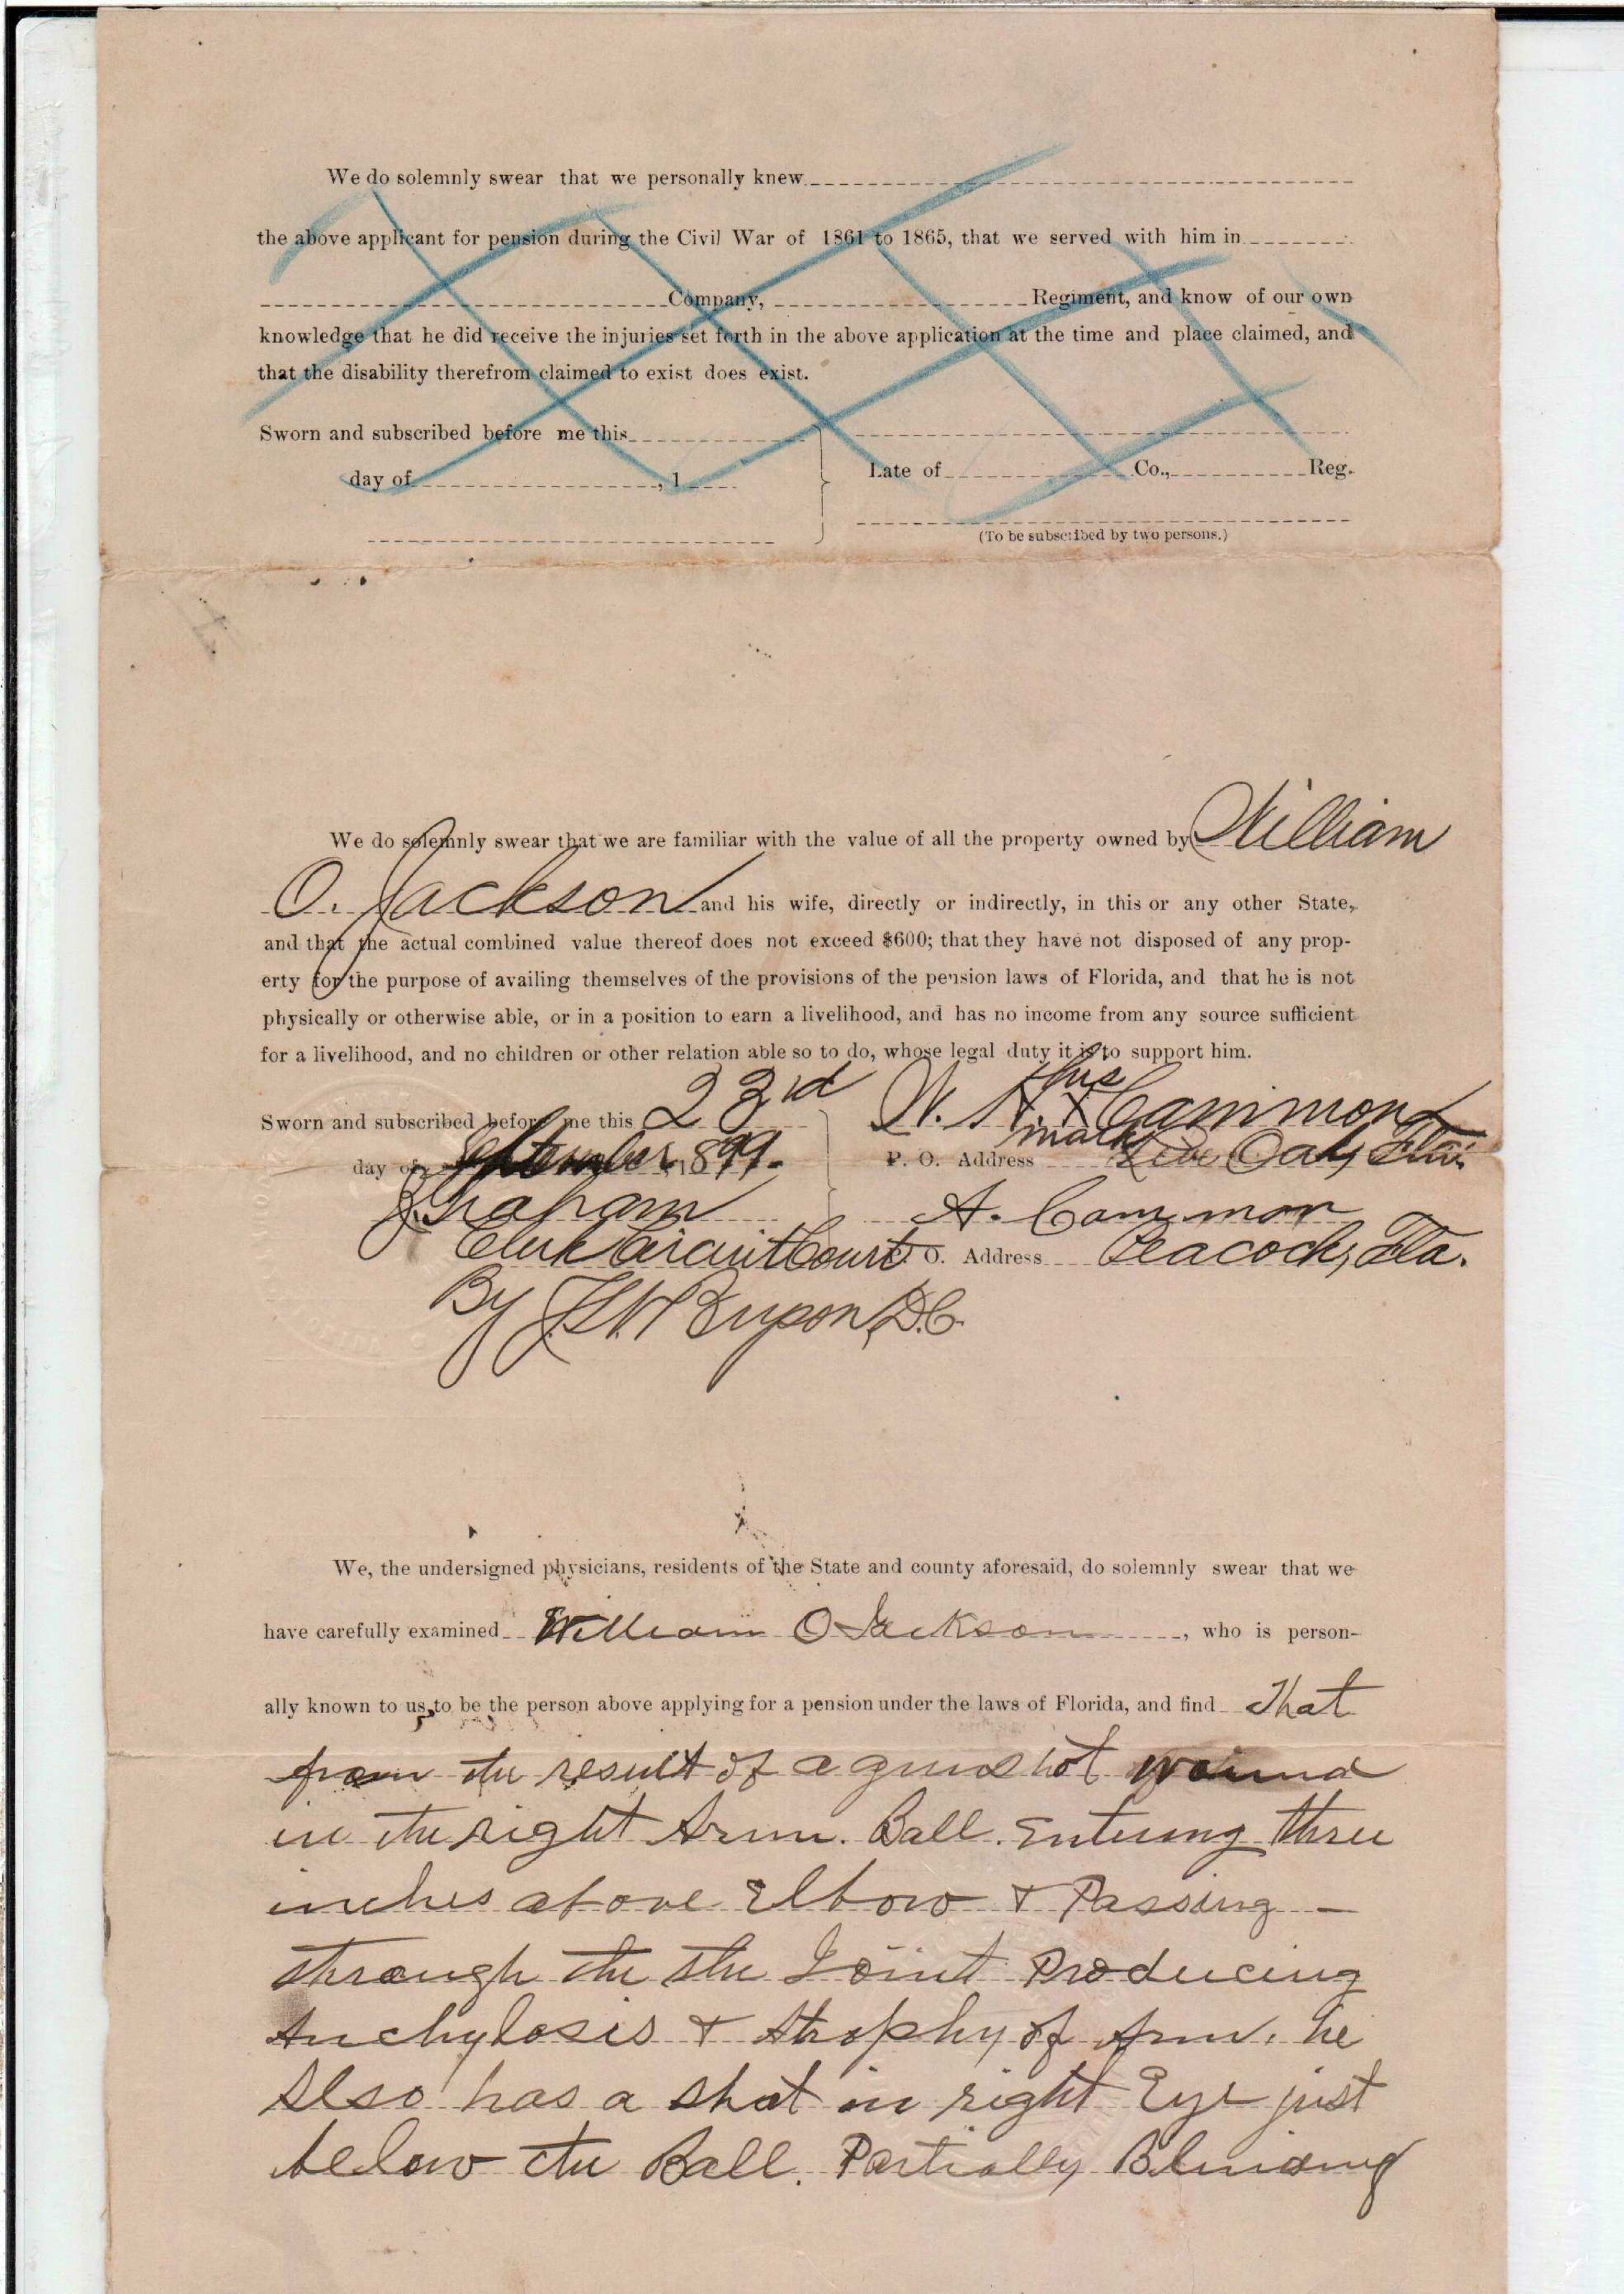 We do solemnly swear that we personally knew
the above applicant for pension during the Civil War of 1861 to 1865, that we served with him in
Company, Regiment, and know of our own
knowledge that he did receive the injuries set forth in the above application at the time and place claimed, and
that the disability therefrom claimed to exist does exist.
Sworn and subscribed before me this
day of , 1
Late of Co., Reg.
(To be subscribed by two persons.)
We do solemnly swear that we are familiar with the value of all the property owned by William
O. Jackson and his wife, directly or indirectly, in this or any other State,
and that the actual combined value thereof does not exceed $600; that they have not disposed of any prop-
erty for the purpose of availing themselves of the provisions of the pension laws of Florida, and that he is not
physically or otherwise able, or in a position to earn a livelihood, and has no income from any source sufficient
for a livelihood, and no children or other relation able so to do, whose legal duty it is to support him.
Sworn and subscribed before me this 23rd
day of September, 1899.
J. Graham
Clerk Circuit Court
By D.C.
his
W. H. X Cammon
mark
P. O. Address Live Oak, Fla.
A. Cammon
P. O. Address Peacock, Fla.
We, the undersigned physicians, residents of the State and county aforesaid, do solemnly swear that we
have carefully examined William O Jackson, who is person-
ally known to us, to be the person above applying for a pension under the laws of Florida, and find That
from the result of a gunshot wound
in the right Arm. Ball. Entering three
inches above Elbow & Passing -
through the the Joint Producing
Anchylosis & Atrophy of Arm. he
Also has a shot in right Eye just
below the Ball. Partially Blinding